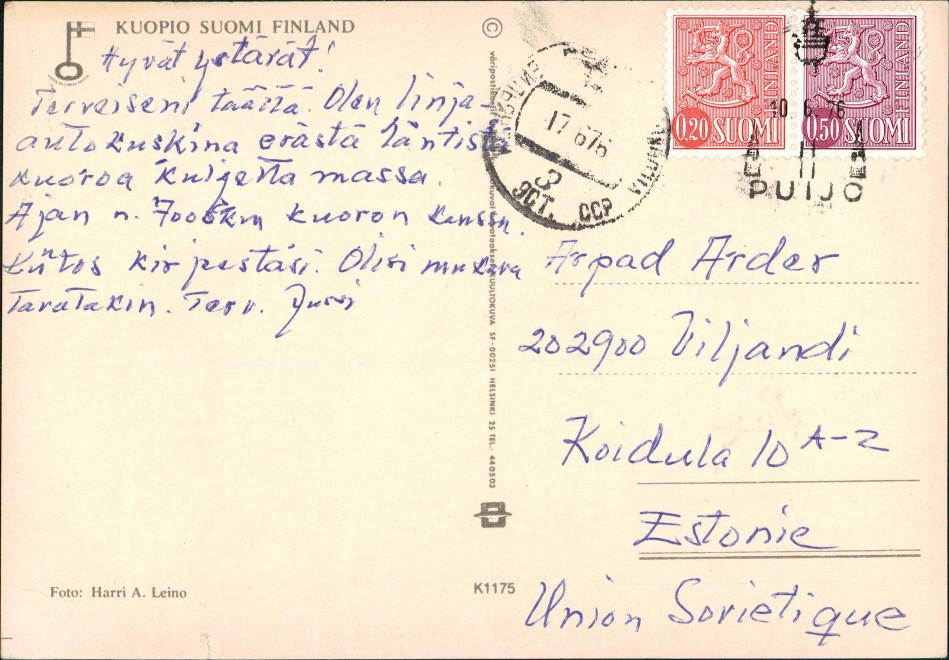 KUOPIO SUOMI FINLAND
Hyvät ystävät!
Terveiseni täältä. Olen linja-
autokuskina erästä läntistä
kuoroa kuljettamassa.
Ajan n. 700 km kuoron kanssa.
Kiitos kirjestäsi. Olisi mukava
tavatakin. Terv. Jussi
Foto: Harri A. Leino
K1175
©
KUULTOKUVA SF-00251 HELSINKI 25 TEL.: 440503
0,20 SUOMI
FINLAND
0,50 SUOMI
FINLAND
10.6.76
PUIJO
ВИЛЬЯНДИ
17 6 76
3
ЭСТ. ССР
VILJANDI
Arpad Arder
202900 Viljandi
Koidula 10 A-2
Estonie
Union Sovietique